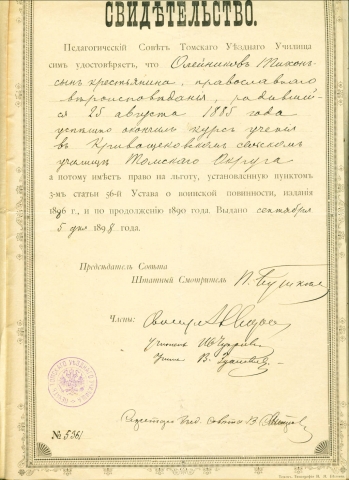 СВИДѢТЕЛЬСТВО.
Педагогическій Совѣтъ Томскаго Уѣзднаго Училища
симъ удостовѣряетъ, что Олейниковъ Тихонъ
сынъ крестьянина, православнаго
вѣроисповѣданія, родившій-
ся 25 августа 1885 года
успѣшно окончилъ курсъ ученія
въ Кривощековскомъ сельскомъ
училищѣ Томскаго Округа
а потому имѣетъ право на льготу, установленную пунктомъ
3-мъ статьи 56-й Устава о воинской повинности, изданія
1886 г., и по продолженію 1890 года. Выдано сентября
5 дня 1898 года.
Предсѣдатель Совѣта
Штатный Смотритель П. Бушков
Члены:
Учитель
Учит. В.
Секретарь Пед. Совѣта В.
№ 5361